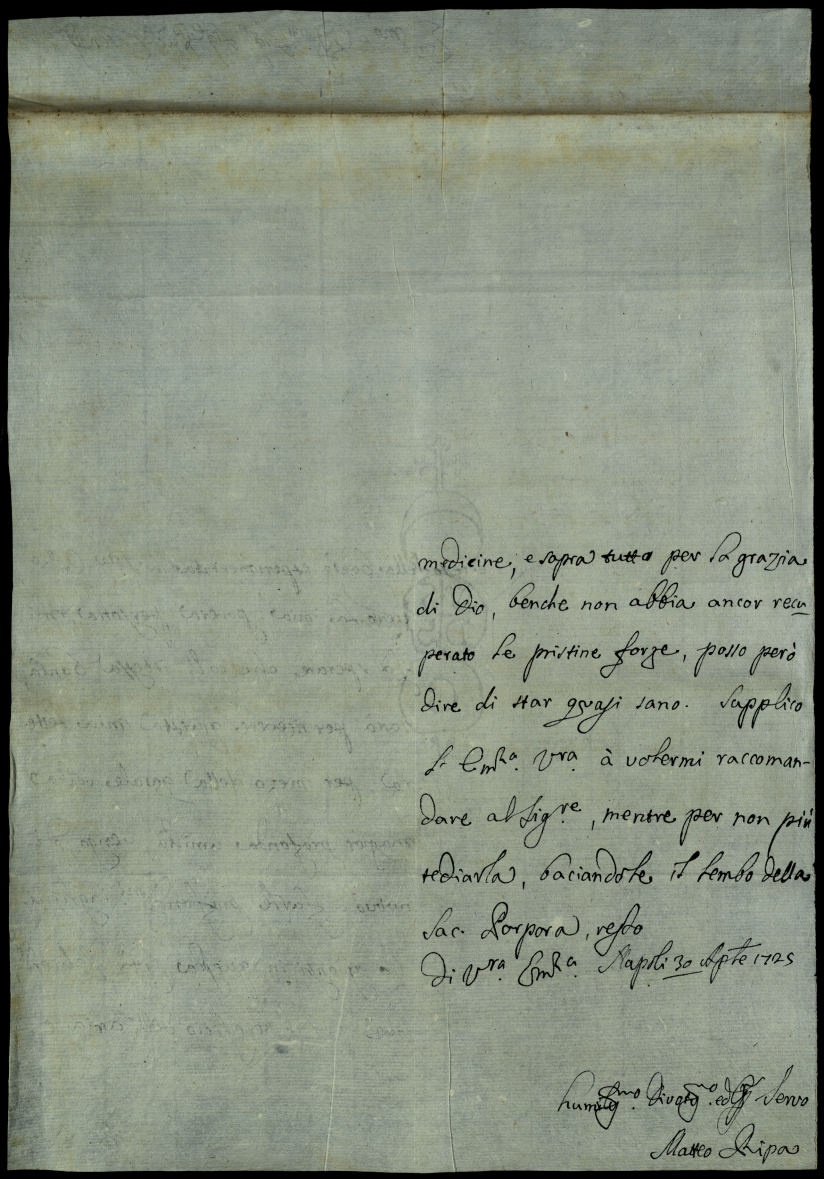 medicine, e sopra tutto per la grazia
di Dio, benche non abbia ancor recu
perato le pristine forze, posso però
dire di star quasi sano. Supplico
l' Emza. Vra. à volermi raccoman-
dare al Sigre, mentre per non più
tediarla, baciandole il lembo della
Sac. Porpora, resto
Di Vra. Emza. Napoli 30 Aple 1725
humilmo. Divotmo. ed Servo
Matteo Ripa